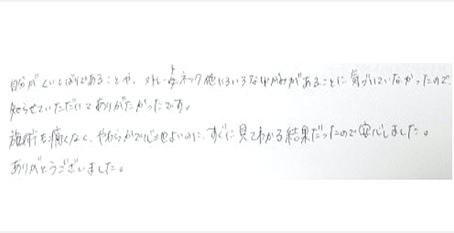 自分がくいしばりであることや、ストレートネック他にいろいろなゆがみがあることに気づいていなかったので
知らせていただいてありがたかったです。
施術も痛くなく、やわらかで心地よいのに、すぐに見てわかる結果だったので安心しました。
ありがとうございました。